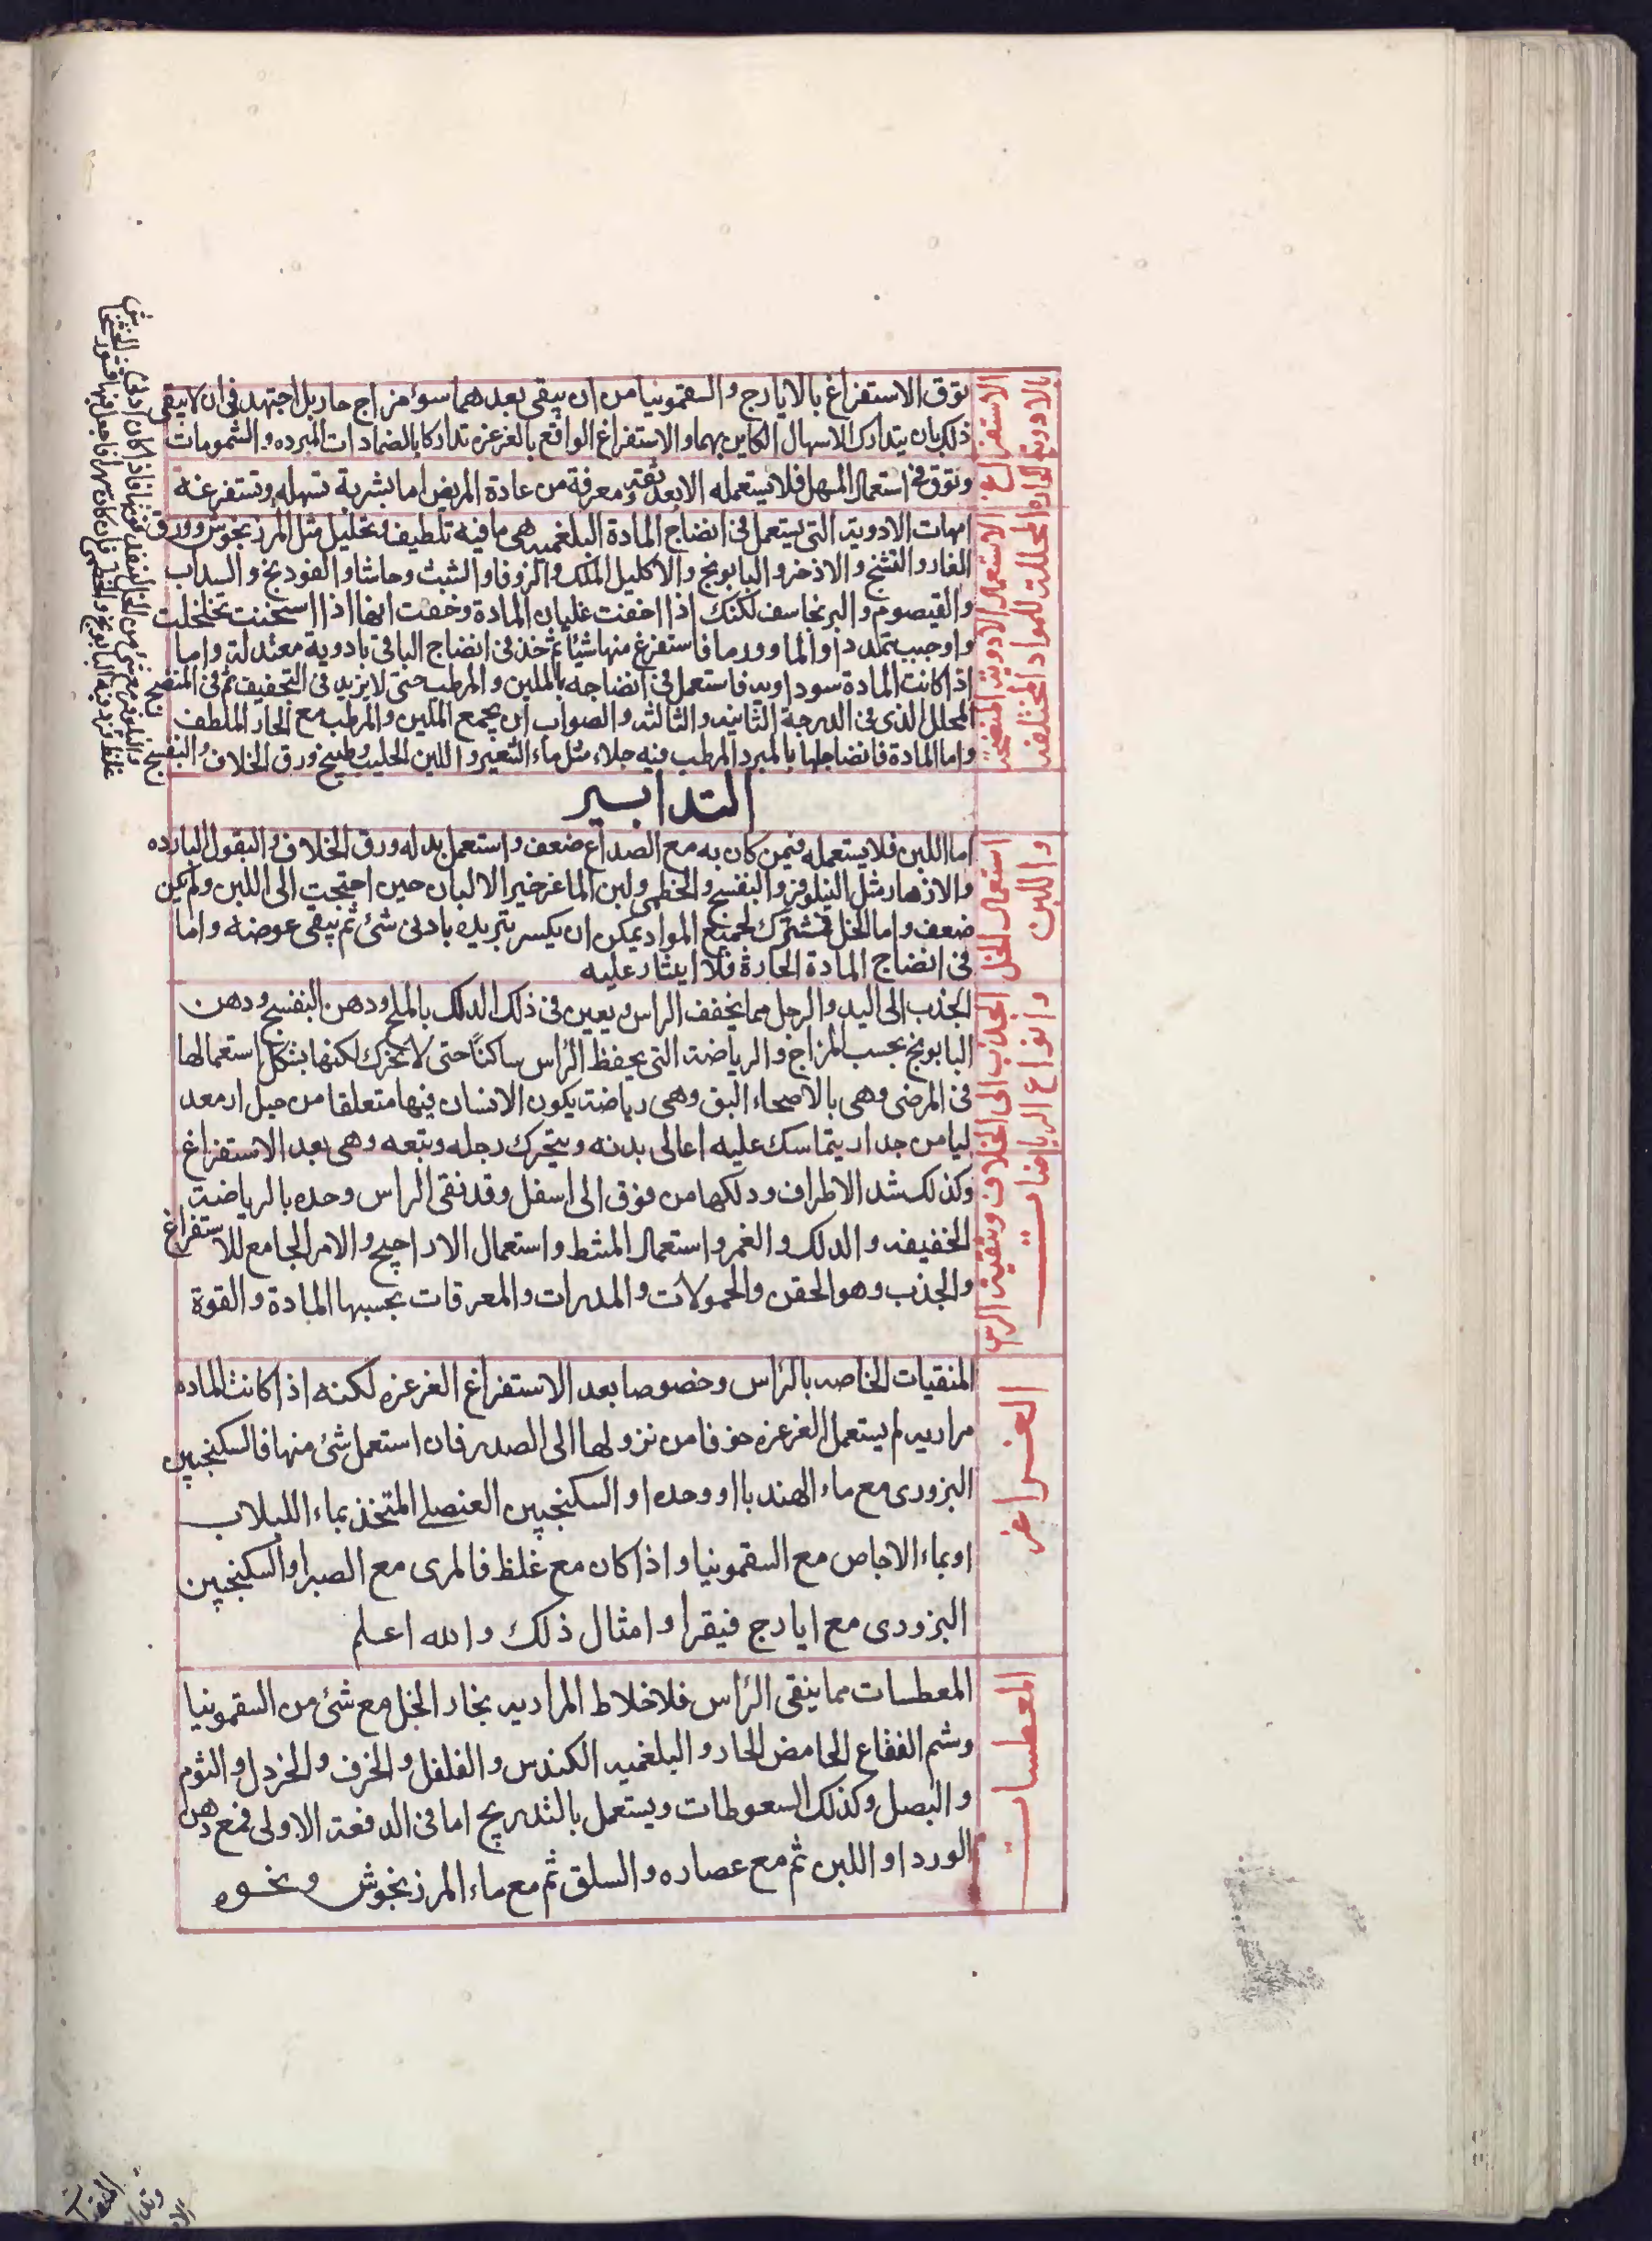 الاستفراغ بالادوية الحاره
توق الاستفراغ بالايارج والسقمونيا من ان يبقى بعدهما سوء مزاج حار بل اجتهد فى ان لا يبقى
ذلك بان يتدارك الاسهال الكاين بهما والاستفراغ الواقع بالغرغره تداركا بالضمادات المبرده والشمومات
وتوق فى استعمال المسهل فلا يستعمله الا بعد ثقة ومعرفة من عادة المريض اما بشربة تسهله وتستفرغه
الاستعمال الادوية المنضجه المحللة للمواد المختلفه
امهات الادوية التى يستعمل فى انضاج المادة البلغميه هى ما فيه تلطيف وتحليل مثل المرزنجوش وورق
الغار والشيح والاذخر والبابونج والاكليل الملك والزوفا والشبث وحاشا والفودنج والسداب
والقيصوم والبرنجاسف لكنك اذا خفت غليان المادة وخفت انها اذا اسخنت تخلخلت
واوجبت تمددا والما وورما فاستفرغ منها شيئا ثم خذ فى انضاج الباقى بادوية معتدلة واما
اذا كانت المادة سوداويه فاستعمل فى انضاجه بالملين والمرطب حتى لا يزيد فى التجفيف ثم فى المنضج
المحلل الذى فى الدرجة الثانيه والثالثه والصواب ان يجمع الملين والمرطب مع الحار الملطف
واما المادة فانضاجها بالمبرد المرطب فيه جلاء مثل ماء الشعير واللبن الحليب وطبيخ ورق الخلاف والبنفسج
التدابير
استعمال الخل واللبن
اما اللبن فلا يستعمله فيمن كان به مع الصداع ضعف واستعمل بدله ورق الخلاف والبقول البارده
والازهار مثل النيلوفر والبنفسج والخطمى ولبن الماعز خير الالبان حين احتجت الى اللبن ولم يكن
ضعف واما الخل فمشترك لجميع المواد يمكن ان يكسر تبريده بادنى شئ ثم يبقى عوضه واما
فى انضاج المادة الحارة فلا ايثار عليه
الجذب الى الخلاف وتنقية الرس وانواع الرياضات
الجذب الى اليد والرجل مما يخفف الراس ويعين فى ذلك الدلك بالملح ودهن البنفسج ودهن
البابونج بحسب المزاج والرياضة التى يحفظ الراس ساكنًا حتى لا يتحرك لكنها يشكل استعمالها
فى المرضى وهى بالاصحاء اليق وهى رياضة يكون الانسان فيها متعلقا من حبل ار معد
ليا من جدار يتماسك عليه اعالى بدنه ويتحرك رجله وتبعه وهى بعد الاستفراغ
وكذلك شد الاطراف ودلكها من فوق الى اسفل وقد نقى الراس وحده بالرياضة
الخفيفه والدلك والغمر واستعمال المشط واستعمال الاراجيح والامر الجامع للاستفراغ
والجذب وهو الحقن والحمولات والمدرات والمعرقات بحسبها المادة والقوة
الغراغر
المنقيات الخاصه بالراس وخصوصا بعد الاستفراغ الغرغره لكنه اذا كانت الماده
مراريه لم يستعمل الغرغره خوفا من نزولها الى الصدر فان استعمل شئ منها فالسكنجبين
البزورى مع ماء الهندبا او وحده او السكنجبين العنصلى المتخذ بماء اللبلاب
او بماء الاجاص مع السقمونيا واذا كان مع غلظ فالمرى مع الصبر او السكنجبين
البزورى مع ايارج فيقرا وامثال ذلك والله اعلم
المعطسات
المعطسات مما ينقى الراس فلاخلاط المراريه بخار الخل مع شئ من السقمونيا
وشم الفقاع الحامض الحار والبلغميه الكندس والفلفل والخرف والخردل والثوم
والبصل وكذلك السعوطات ويستعمل بالتدريج اما فى الدفعة الاولى فمع دهن
الورد او اللبن ثم مع عصاره والسلق ثم مع ماء المرزنجوش ونحوه